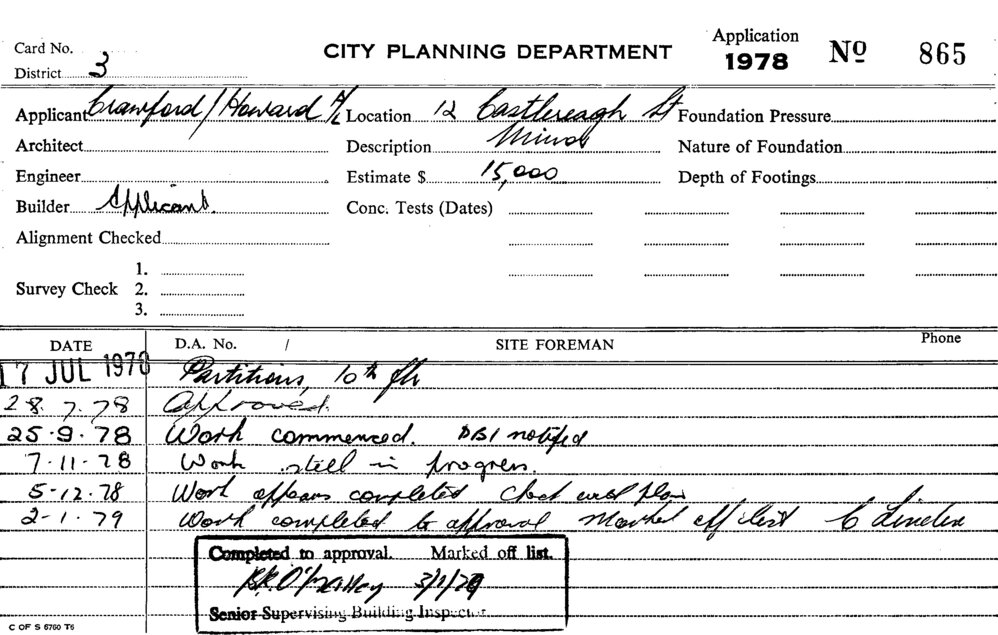 Card No.
District 3
CITY PLANNING DEPARTMENT
Application
1978 Nº 865
Applicant Crawford/Howard A/L Location 12 Castlereagh St Foundation Pressure
Architect Description Minor Nature of Foundation
Engineer Estimate $ 15,000 Depth of Footings
Builder Applicant. Conc. Tests (Dates)
Alignment Checked
Survey Check 1.
2.
3.
DATE D.A. No. / SITE FOREMAN Phone
17 JUL 1978 Partitions, 10th flr
28.7.78 Approved.
25.9.78 Work commenced. DBI notified
7.11.78 Work still in progress.
5.12.78 Work appears completed check with plan
2-1.79 Work completed to approval Marked off list
Completed to approval. Marked off list.
3/1/79
Senior Supervising Building Inspector.
C OF S 6760 T6